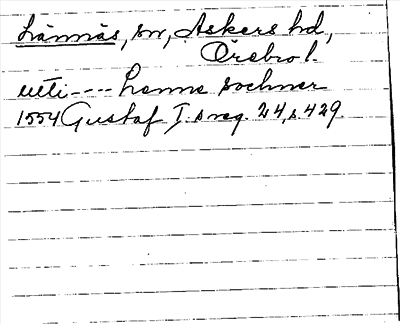 Lännäs, sn, Askers hd,
Örebro l.
utti---- Lenna sochner
1554 Gustaf I. s reg. 24, s. 429.